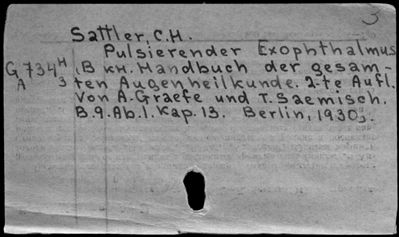 3
Sattler, C.H.
Pulsierender Exophthalmus
G734 H .B кн. Handbuch der gesam-
A 3 ten Augenheilkunde. 2-te Aufl.
Von A. Graefe und T. Saemisch.
B.9. Ab.1. Kap. 13. Berlin, 1930.